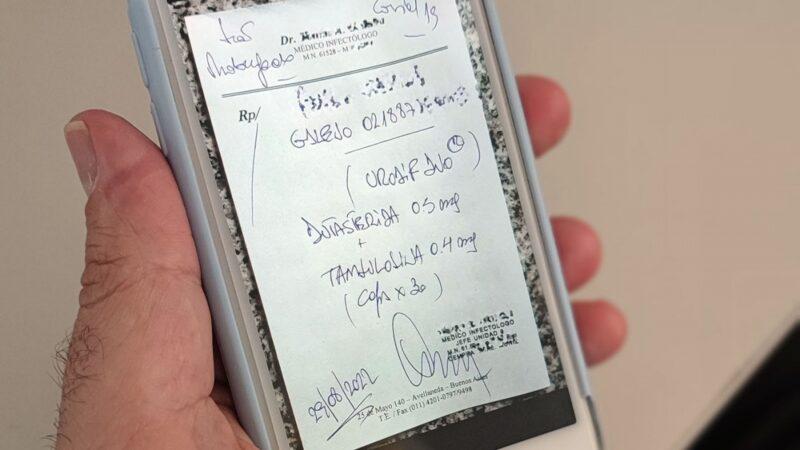 Covid 19
Dr.
MÉDICO INFECTÓLOGO
M.N. 61528 - M.
Rp/
GALENO 021887
(UROSIF DUO)
DUTASTERIDA 0.5 mg
+
TAMSULOSINA 0.4 mg
(Caps x 30)
MEDICO INFECTOLOGO
JEFE UNIDAD
M.N. 61.
29/08/2022
25 de Mayo 140 – Avellaneda – Buenos Aires
T.E. / Fax (011) 4201-0797/9498